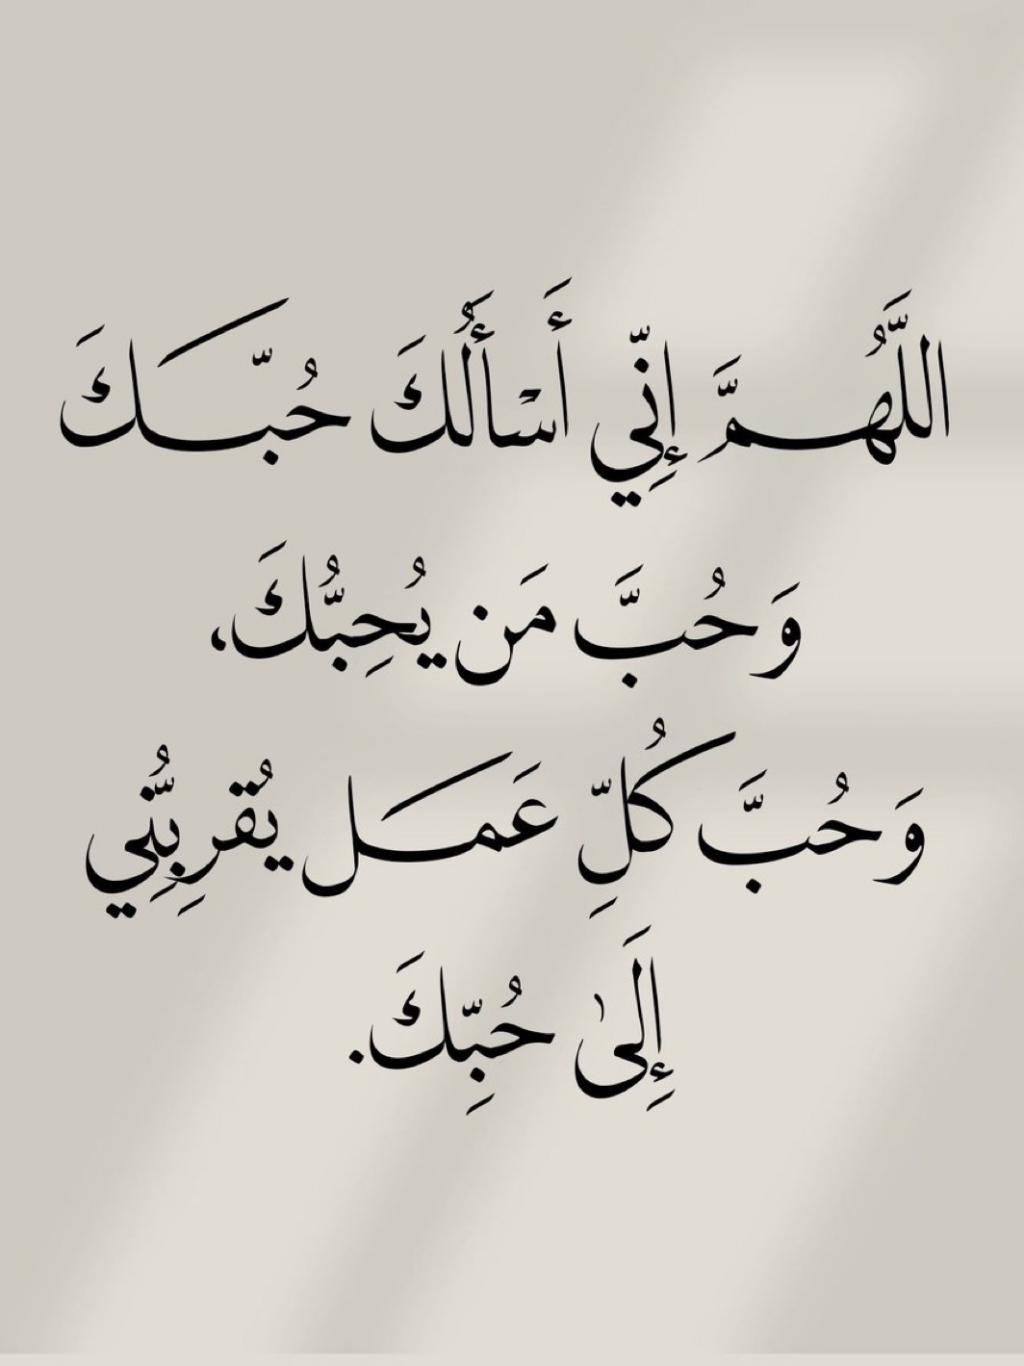 اللَّهُمَّ إِنِّي أَسْأَلُكَ حُبَّكَ
وَحُبَّ مَن يُحِبُّكَ،
وَحُبَّ كُلِّ عَمَلٍ يُقرِبُّنِي
إِلَىٰ حُبِّكَ.